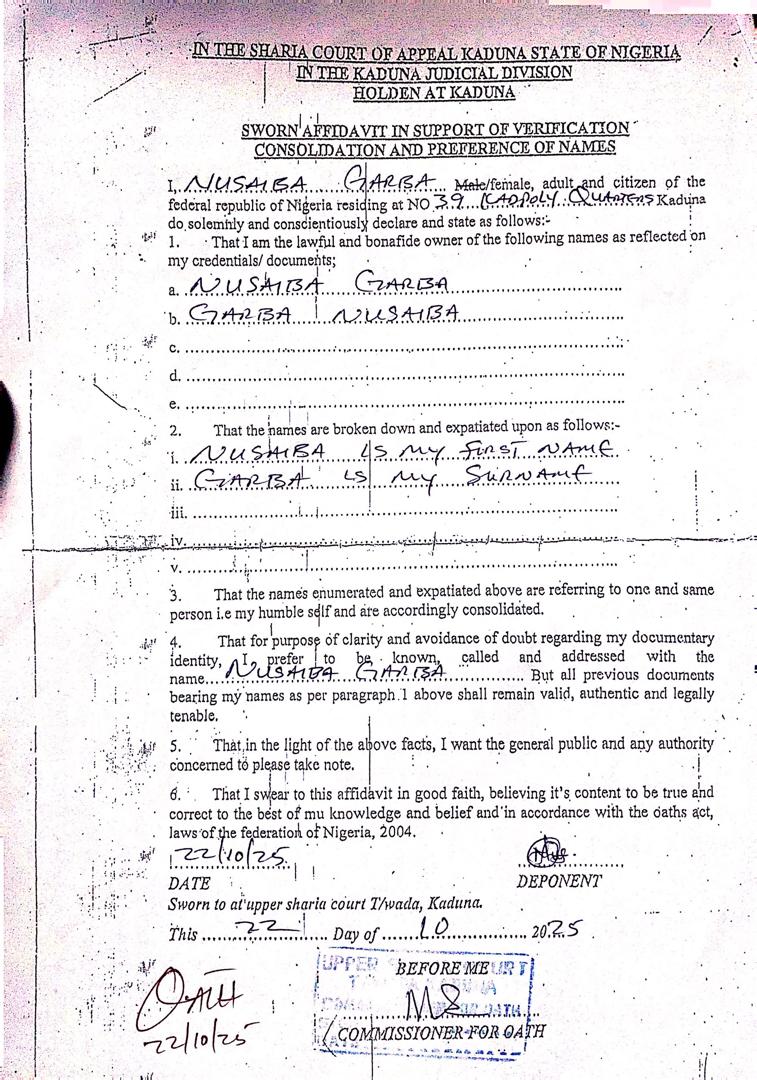 IN THE SHARIA COURT OF APPEAL KADUNA STATE OF NIGERIA
IN THE KADUNA JUDICIAL DIVISION
HOLDEN AT KADUNA
SWORN AFFIDAVIT IN SUPPORT OF VERIFICATION
CONSOLIDATION AND PREFERENCE OF NAMES
I, NUSAIBA GARBA Male/female, adult and citizen of the
federal republic of Nigeria residing at NO 39 KADPOLY QUARTERS Kaduna
do solemnly and conscientiously declare and state as follows:-
1. That I am the lawful and bonafide owner of the following names as reflected on
my credentials/ documents;
a. NUSAIBA GARBA
b. GARBA NUSAIBA
c.
d.
e.
2. That the names are broken down and expatiated upon as follows:-
i. NUSAIBA IS MY FIRST NAME
ii. GARBA IS MY SURNAME
iii.
iv.
v.
3. That the names enumerated and expatiated above are referring to one and same
person i.e my humble self and are accordingly consolidated.
4. That for purpose of clarity and avoidance of doubt regarding my documentary
identity, I prefer to be known, called and addressed with the
name NUSAIBA GARBA But all previous documents
bearing my names as per paragraph 1 above shall remain valid, authentic and legally
tenable.
5. That in the light of the above facts, I want the general public and any authority
concerned to please take note.
6. That I swear to this affidavit in good faith, believing it's content to be true and
correct to the best of mu knowledge and belief and in accordance with the oaths act,
laws of the federation of Nigeria, 2004.
22/10/25
DATE DEPONENT
Sworn to at upper sharia court T/wada, Kaduna.
This 22 Day of 10 2025
UPPER COURT
BEFORE ME
OATH
22/10/25
COMMISSIONER FOR OATH